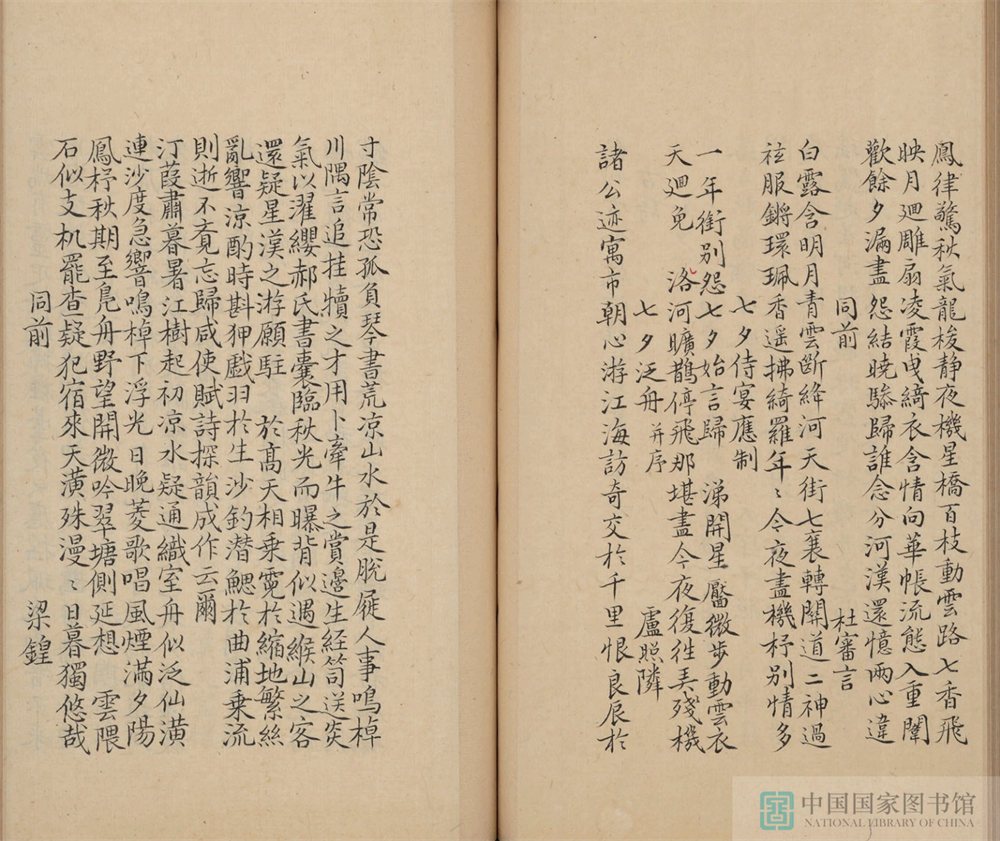 鳳律驚秋氣龍梭静夜機星橋百枝動雲路七香飛
映月廻雕扇凌霞曳綺衣含情向華帳流態入重闈
歡餘夕漏盡怨結曉驂歸誰念分河漢還憶兩心違
同前 杜審言
白露含明月青雲斷絳河天街七襄轉閣道二神過
袨服鏘環珮香遥拂綺羅年〻今夜盡機杼別情多
七夕侍宴應制
一年銜別怨七夕始言歸 涕開星靨微步動雲衣
天廻兔 洛河曠鵲停飛那堪盡今夜復徃弄殘機
七夕泛舟并序 盧照隣
諸公迹寓市朝心游江海訪奇交於千里恨良辰於
寸陰常恐孤負琴書荒凉山水於是脫屣人事鳴棹
川隅言追挂犢之才用卜牽牛之賞邊生経笥送炎
氣以濯纓郝氏書囊臨秋光而曝背似遇緱山之客
還疑星漢之游願駐 於高天相乗霓於縮地繁絲
亂響凉酌時斟狎戯羽於生沙釣潜鰓於曲浦乗流
則逝不覔忘歸咸使賦詩探韻成作云爾
汀葭肅暮暑江樹起初凉水疑通織室舟似泛仙潢
連沙度急響鳴棹下浮光日晚菱歌唱風煙滿夕陽
鳳杼秋期至鳬舟野望開微吟翠塘側延想 雲隈
石似支机罷查疑犯宿來天潢殊漫〻日暮獨悠哉
同前 梁鍠
中国国家图书馆
NATIONAL LIBRARY OF CHINA